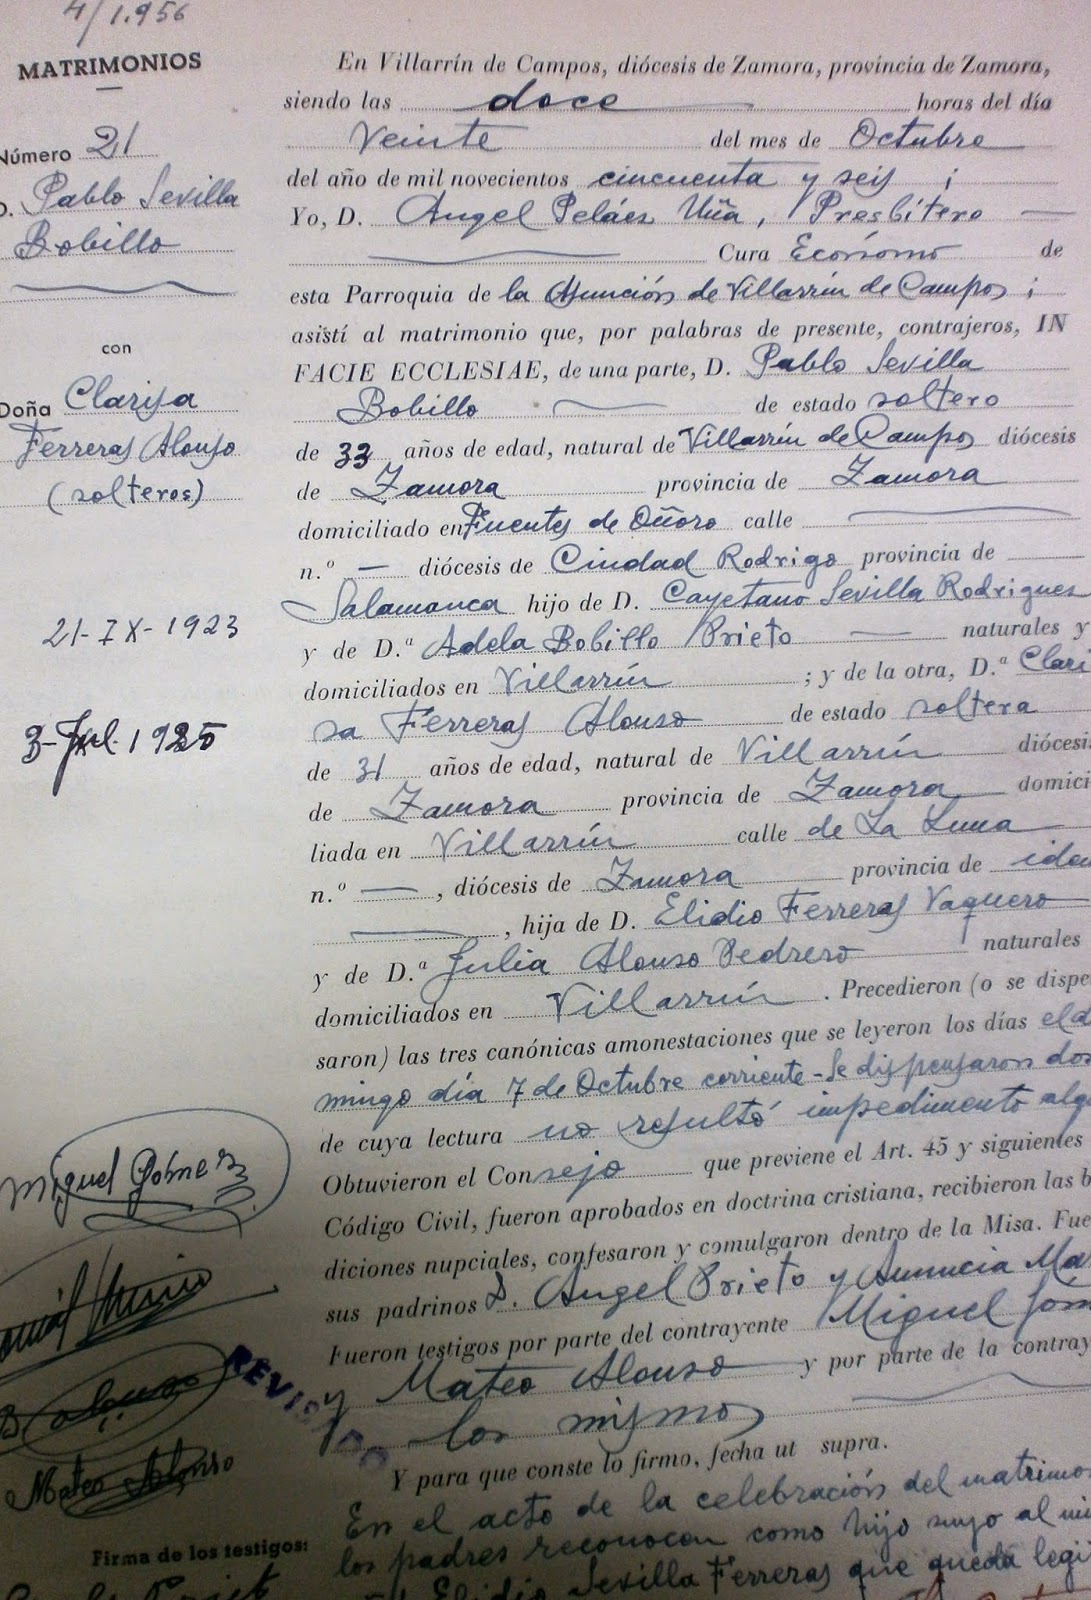 4/1.956
MATRIMONIOS
Número 21
D. Pablo Sevilla
Bobillo
con
Doña Clarisa
Ferreras Alonso
(solteros)
21-IX-1923
3-Jul-1925
Miguel Gómez
Mateo Alonso
REVISADO
Firma de los testigos:
En Villarrín de Campos, diócesis de Zamora, provincia de Zamora,
siendo las doce horas del día
Veinte del mes de Octubre
del año de mil novecientos cincuenta y seis ;
Yo, D. Angel Peláes Uña, Presbítero
Cura Ecónomo de
esta Parroquia de la Asunción de Villarrín de Campos ;
asistí al matrimonio que, por palabras de presente, contrajeros, IN
FACIE ECCLESIAE, de una parte, D. Pablo Sevilla
Bobillo de estado soltero
de 33 años de edad, natural de Villarrín de Campos diócesis
de Zamora provincia de Zamora
domiciliado en Fuentes de Oñoro calle
n.º — diócesis de Ciudad Rodrigo provincia de
Salamanca hijo de D. Cayetano Sevilla Rodrigues
y de D.ª Adela Bobillo Prieto naturales y
domiciliados en Villarrín ; y de la otra, D.ª Clari
sa Ferreras Alonso de estado soltera
de 31 años de edad, natural de Villarrín diócesi
de Zamora provincia de Zamora domici
liada en Villarrín calle de La Luna
n.º —, diócesis de Zamora provincia de ide
, hija de D. Elidio Ferreras Vaquero
y de D.ª Julia Alonso Pedrero naturales
domiciliados en Villarrín . Precedieron (o se dispe
saron) las tres canónicas amonestaciones que se leyeron los días el d
mingo día 7 de Octubre corriente - Se dispensaron dos
de cuya lectura no resultó impedimento alg
Obtuvieron el Consejo que previene el Art. 45 y siguientes
Código Civil, fueron aprobados en doctrina cristiana, recibieron las b
diciones nupciales, confesaron y comulgaron dentro de la Misa. Fue
sus padrinos D. Angel Prieto y Anuncia Ma
Fueron testigos por parte del contrayente Miguel Gom
y Mateo Alonso y por parte de la contray
los mismos
Y para que conste lo firmo, fecha ut supra.
En el acto de la celebración del matrimo
los padres reconocen como hijo suyo al ni
Elidio Sevilla Ferreras que queda legi